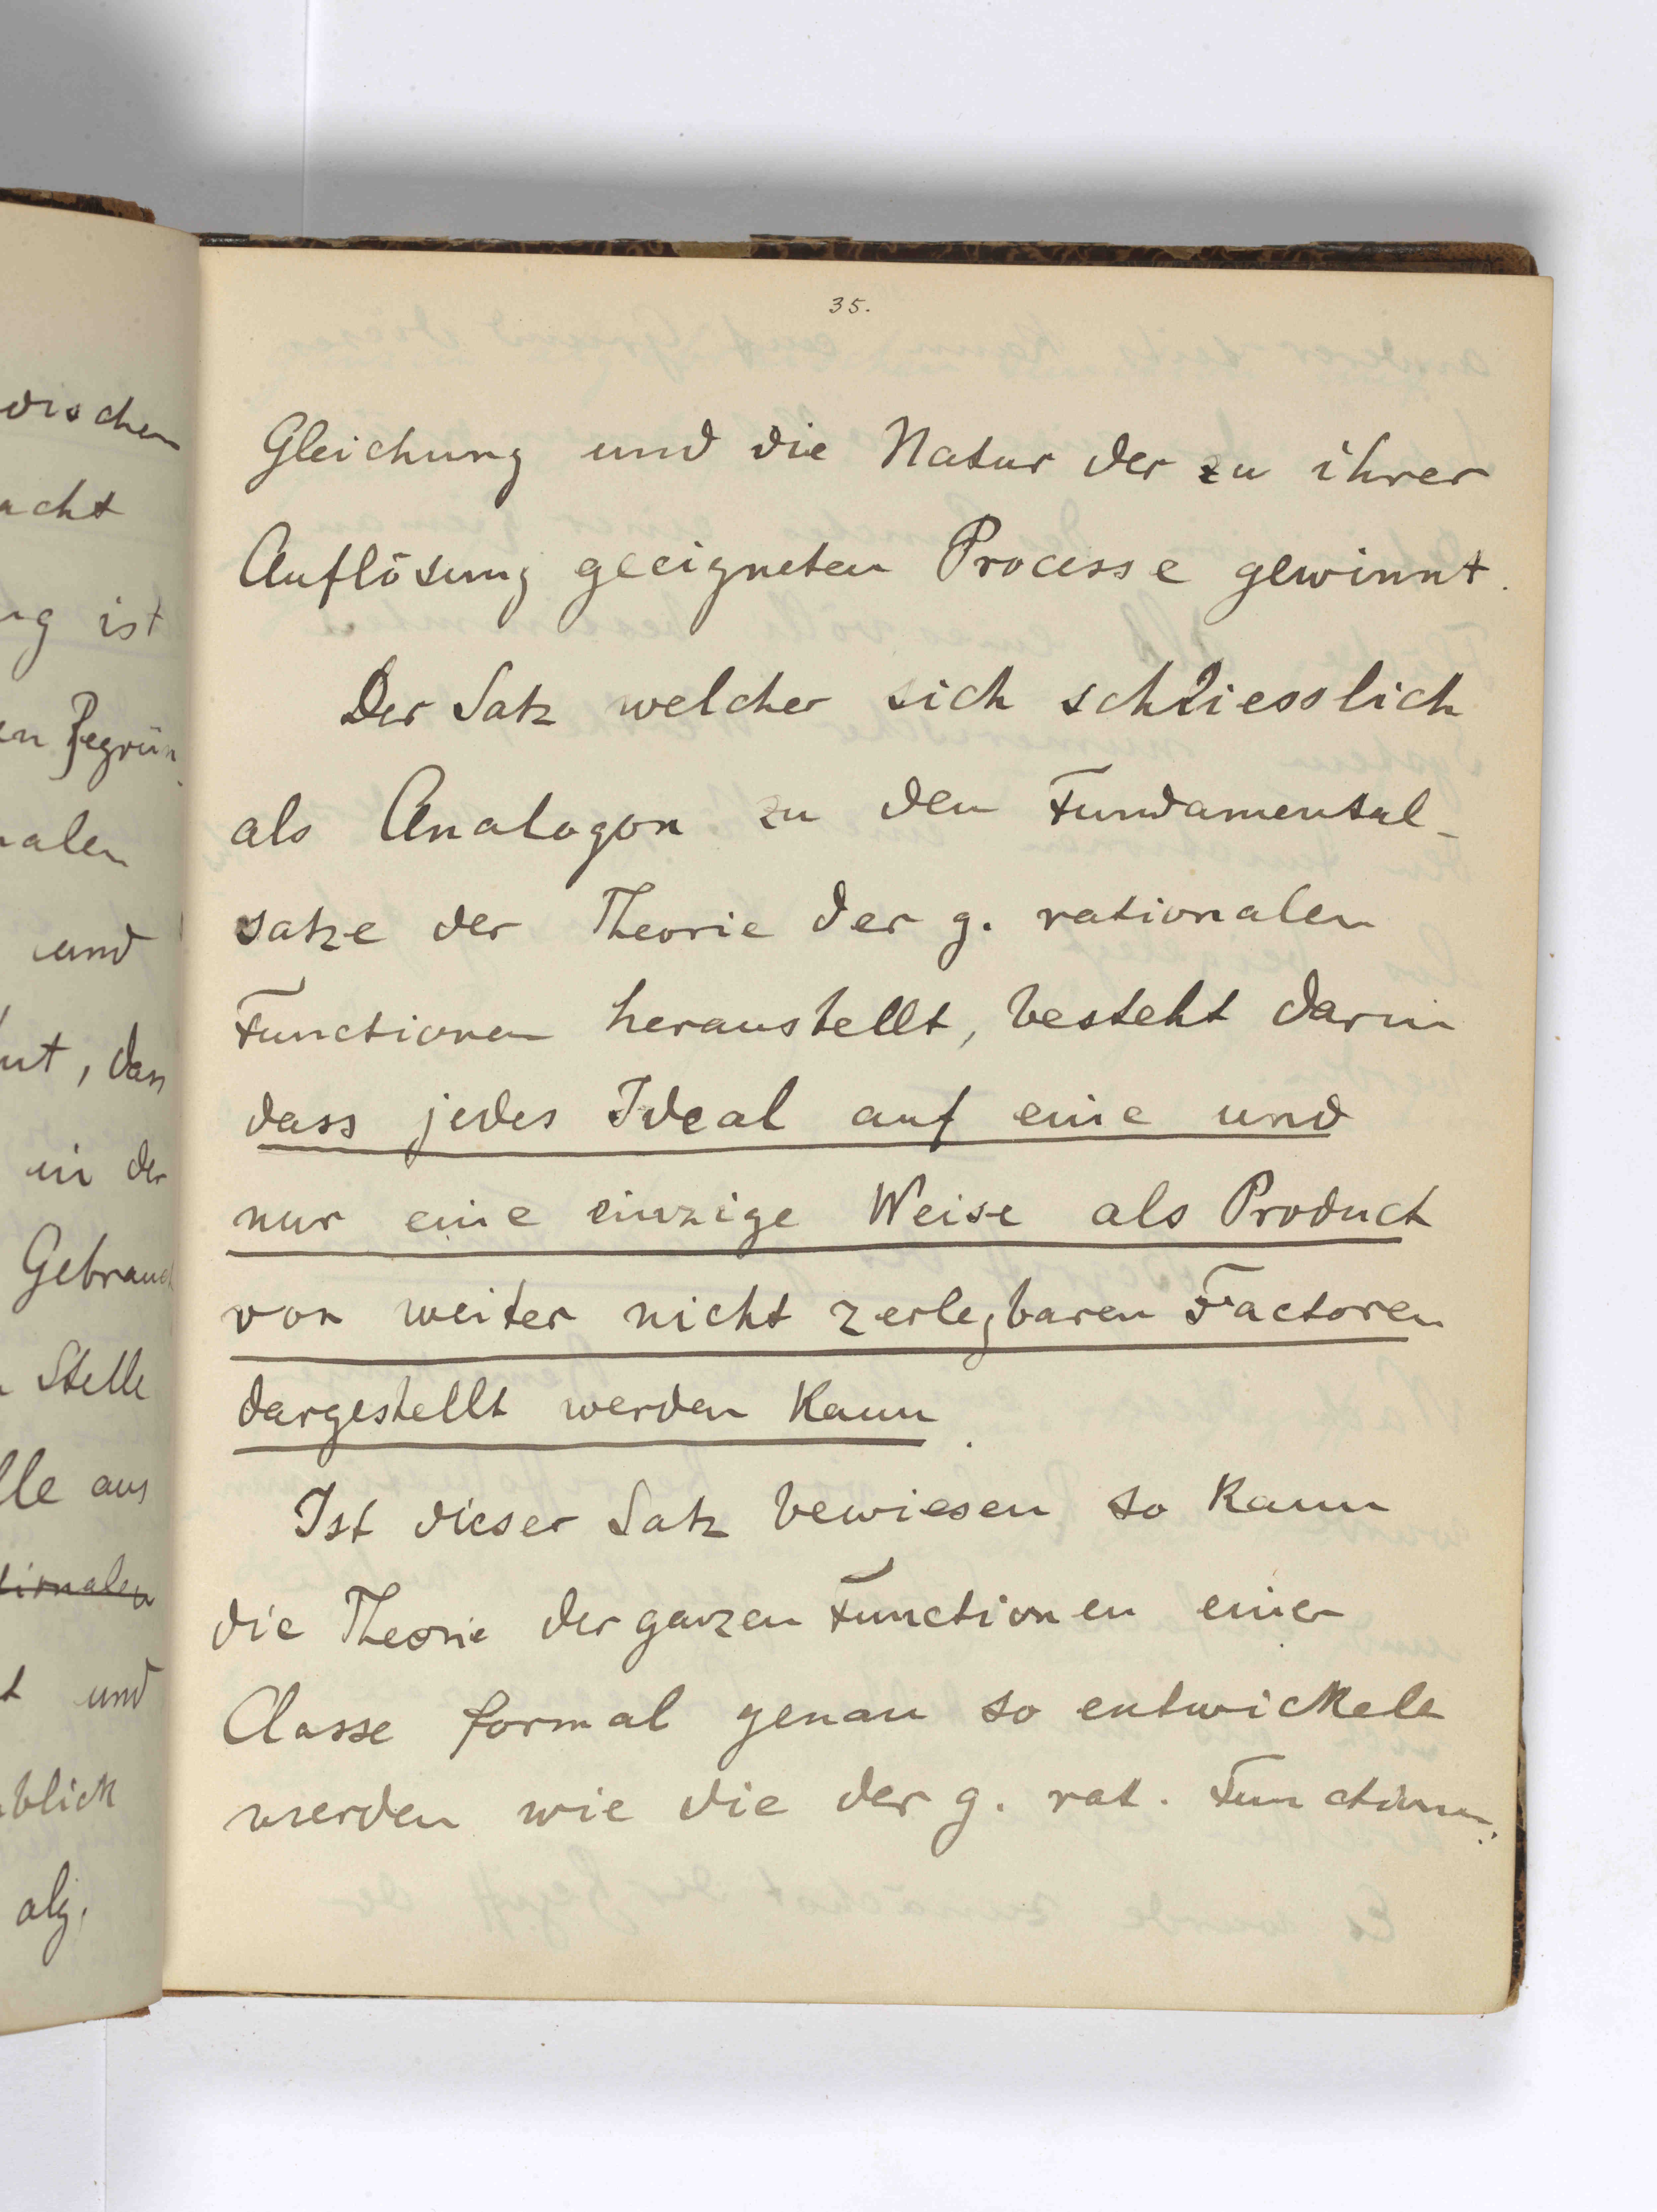 35.
Gleichung und die Natur der zu ihrer
Auflösung geeigneten Processe gewinnt.
Der Satz welcher sich schliesslich
als Analogon zu den Fundamental-
satze der Theorie der g. rationalen
Functionen heraustellt, besteht darin
dass jedes Ideal auf eine und
nur eine einzige Weise als Product
von weiter nicht zerlegbaren Factoren
dargestellt werden kann.
Ist dieser Satz bewiesen so kann
die Theorie der ganzen Functionen einer
Classe formal genau so entwickeln
werden wie die der g. rat. Functionen.